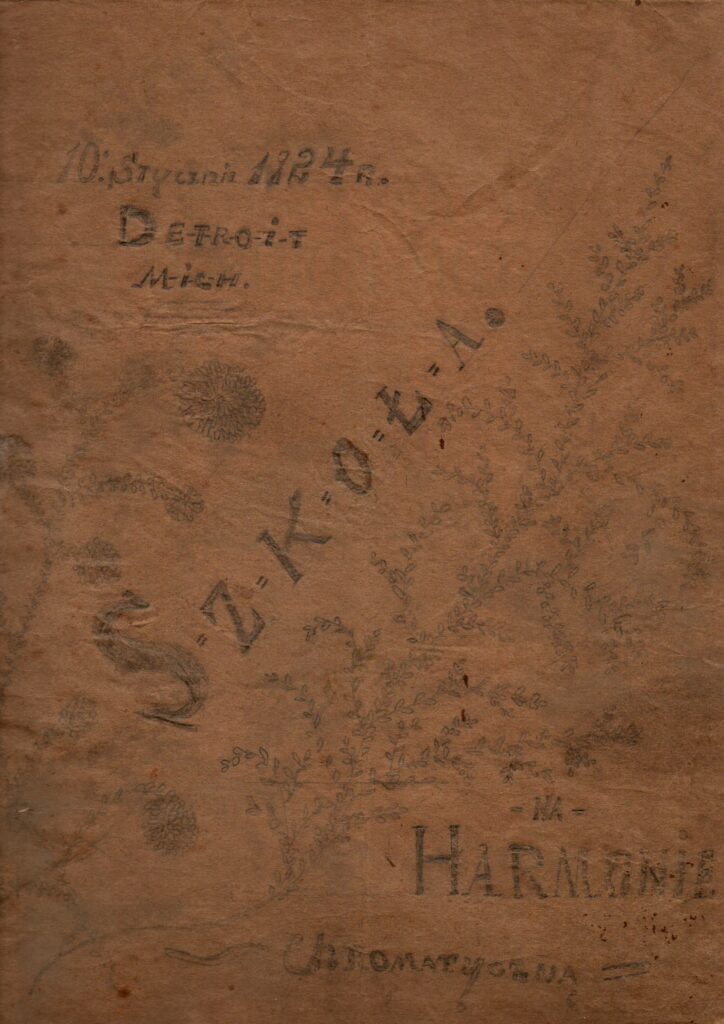 10. Stycznia 1924 R.
D-E-T-R-O-I-T
M-I-C-H.
S=Z=K=O=Ł=A.
- NA -
HARMONIE
CHROMATYCZNĄ =